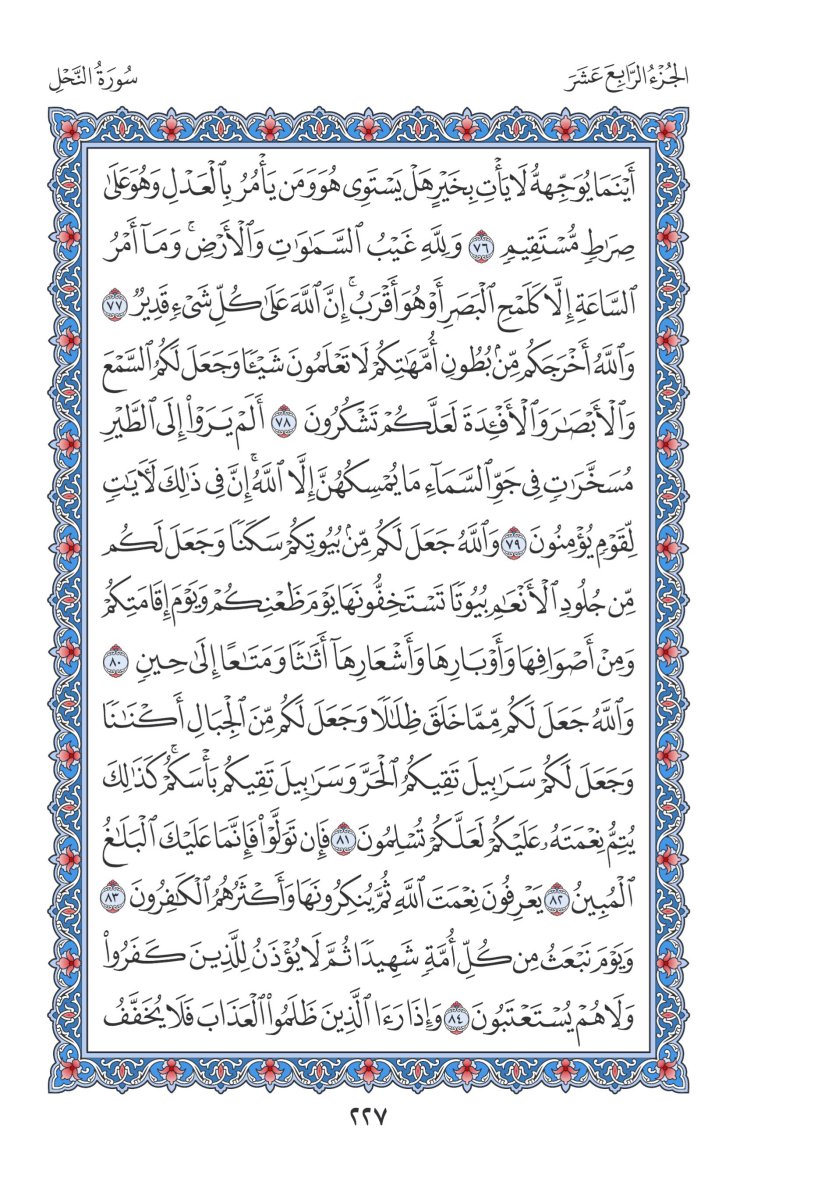 الجُزْءُ الرَّابِعَ عَشَرَ
سُورَةُ النَّحْلِ
أَيۡنَمَا يُوَجِّههُّ لَا يَأۡتِ بِخَيۡرٍ هَلۡ يَسۡتَوِي هُوَ وَمَن يَأۡمُرُ بِٱلۡعَدۡلِ وَهُوَ عَلَىٰ
صِرَٰطٖ مُّسۡتَقِيمٖ ٧٦ وَلِلَّهِ غَيۡبُ ٱلسَّمَٰوَٰتِ وَٱلۡأَرۡضِۚ وَمَآ أَمۡرُ
ٱلسَّاعَةِ إِلَّا كَلَمۡحِ ٱلۡبَصَرِ أَوۡ هُوَ أَقۡرَبُۚ إِنَّ ٱللَّهَ عَلَىٰ كُلِّ شَيۡءٖ قَدِيرٞ ٧٧
وَٱللَّهُ أَخۡرَجَكُم مِّنۢ بُطُونِ أُمَّهَٰتِكُمۡ لَا تَعۡلَمُونَ شَيۡـٔٗا وَجَعَلَ لَكُمُ ٱلسَّمۡعَ
وَٱلۡأَبۡصَٰرَ وَٱلۡأَفۡـِٔدَةَ لَعَلَّكُمۡ تَشۡكُرُونَ ٧٨ أَلَمۡ يَرَوۡاْ إِلَى ٱلطَّيۡرِ
مُسَخَّرَٰتٖ فِي جَوِّ ٱلسَّمَآءِ مَا يُمۡسِكُهُنَّ إِلَّا ٱللَّهُۚ إِنَّ فِي ذَٰلِكَ لَأٓيَٰتٖ
لِّقَوۡمٖ يُؤۡمِنُونَ ٧٩ وَٱللَّهُ جَعَلَ لَكُم مِّنۢ بُيُوتِكُمۡ سَكَنٗا وَجَعَلَ لَكُم
مِّن جُلُودِ ٱلۡأَنۡعَٰمِ بُيُوتٗا تَسۡتَخِفُّونَهَا يَوۡمَ ظَعۡنِكُمۡ وَيَوۡمَ إِقَامَتِكُمۡ
وَمِنۡ أَصۡوَافِهَا وَأَوۡبَارِهَا وَأَشۡعَارِهَآ أَثَٰثٗا وَمَتَٰعًا إِلَىٰ حِينٖ ٨٠
وَٱللَّهُ جَعَلَ لَكُم مِّمَّا خَلَقَ ظِلَٰلٗا وَجَعَلَ لَكُم مِّنَ ٱلۡجِبَالِ أَكۡنَٰنٗا
وَجَعَلَ لَكُمۡ سَرَٰبِيلَ تَقِيكُمُ ٱلۡحَرَّ وَسَرَٰبِيلَ تَقِيكُم بَأۡسَكُمۡۚ كَذَٰلِكَ
يُتِمُّ نِعۡمَتَهُۥ عَلَيۡكُمۡ لَعَلَّكُمۡ تُسۡلِمُونَ ٨١ فَإِن تَوَلَّوۡاْ فَإِنَّمَا عَلَيۡكَ ٱلۡبَلَٰغُ
ٱلۡمُبِينُ ٨٢ يَعۡرِفُونَ نِعۡمَتَ ٱللَّهِ ثُمَّ يُنكِرُونَهَا وَأَكۡثَرُهُمُ ٱلۡكَٰفِرُونَ ٨٣
وَيَوۡمَ نَبۡعَثُ مِن كُلِّ أُمَّةٖ شَهِيدٗا ثُمَّ لَا يُؤۡذَنُ لِلَّذِينَ كَفَرُواْ
وَلَا هُمۡ يُسۡتَعۡتَبُونَ ٨٤ وَإِذَا رَءَا ٱلَّذِينَ ظَلَمُواْ ٱلۡعَذَابَ فَلَا يُخَفَّفُ
٢٢٧